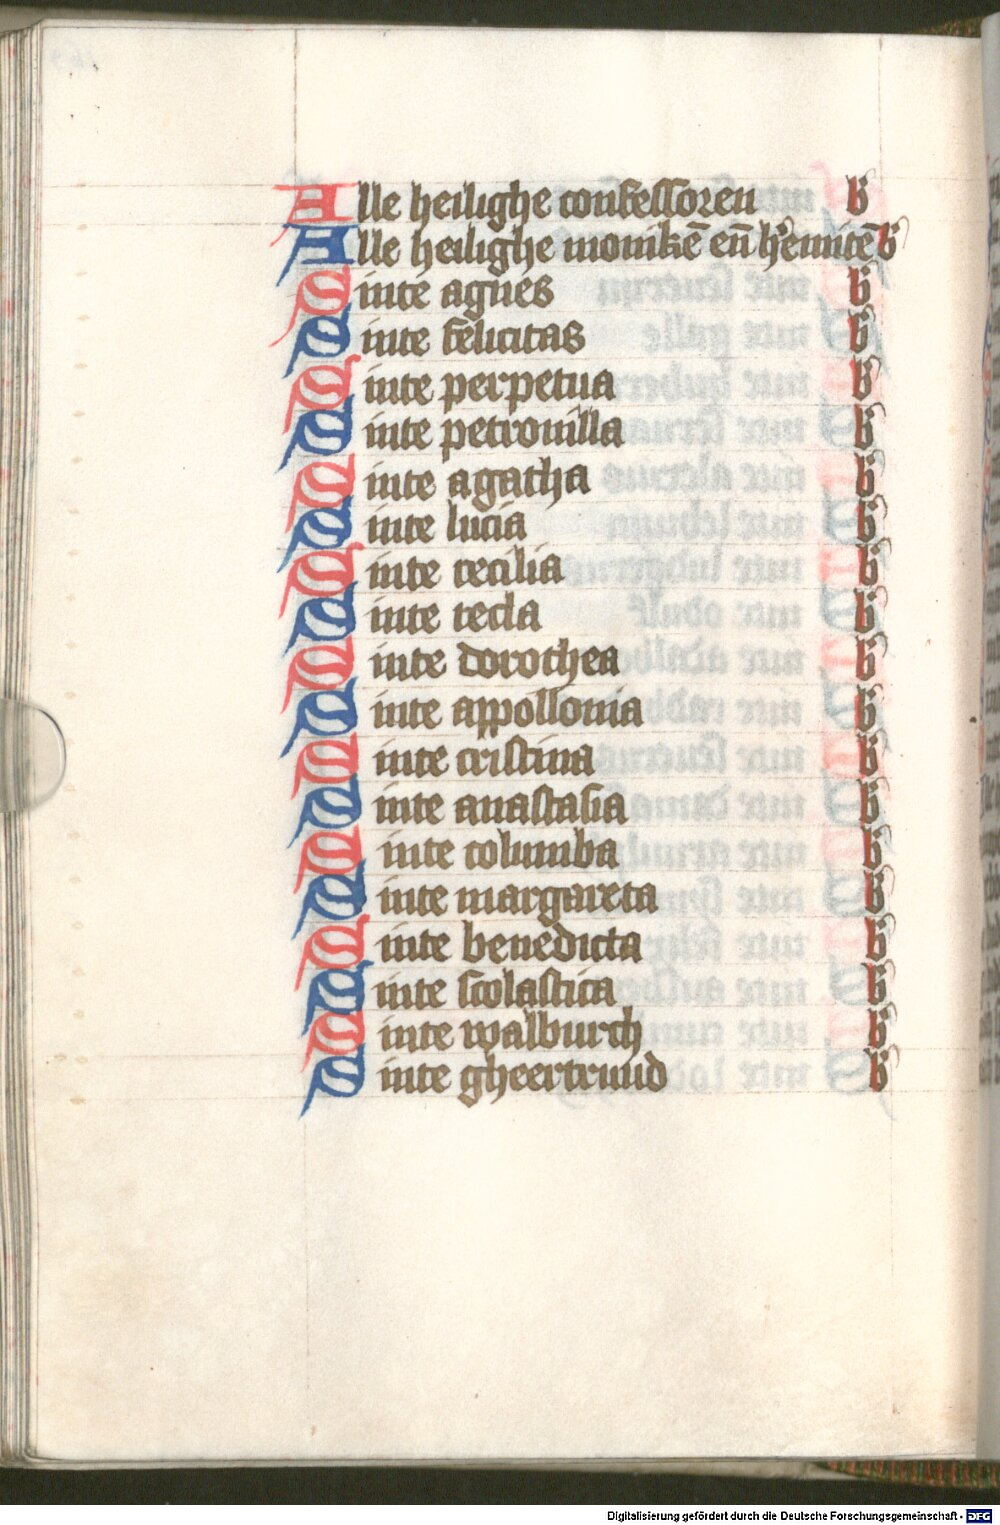 Alle heilighe confessoren b
Alle heilighe monikē en̄ h'emitē b
Sinte agnes b
Sinte felicitas b
Sinte perpetua b
Sinte petronilla b
Sinte agatha b
Sinte lucia b
Sinte cecilia b
Sinte tecla b
Sinte dorothea b
Sinte appollonia b
Sinte cristina b
Sinte anastasia b
Sinte columba b
Sinte margareta b
Sinte benedicta b
Sinte scolastica b
Sinte walburch b
Sinte gheertruud b
Digitalisierung gefördert durch die Deutsche Forschungsgemeinschaft - DFG